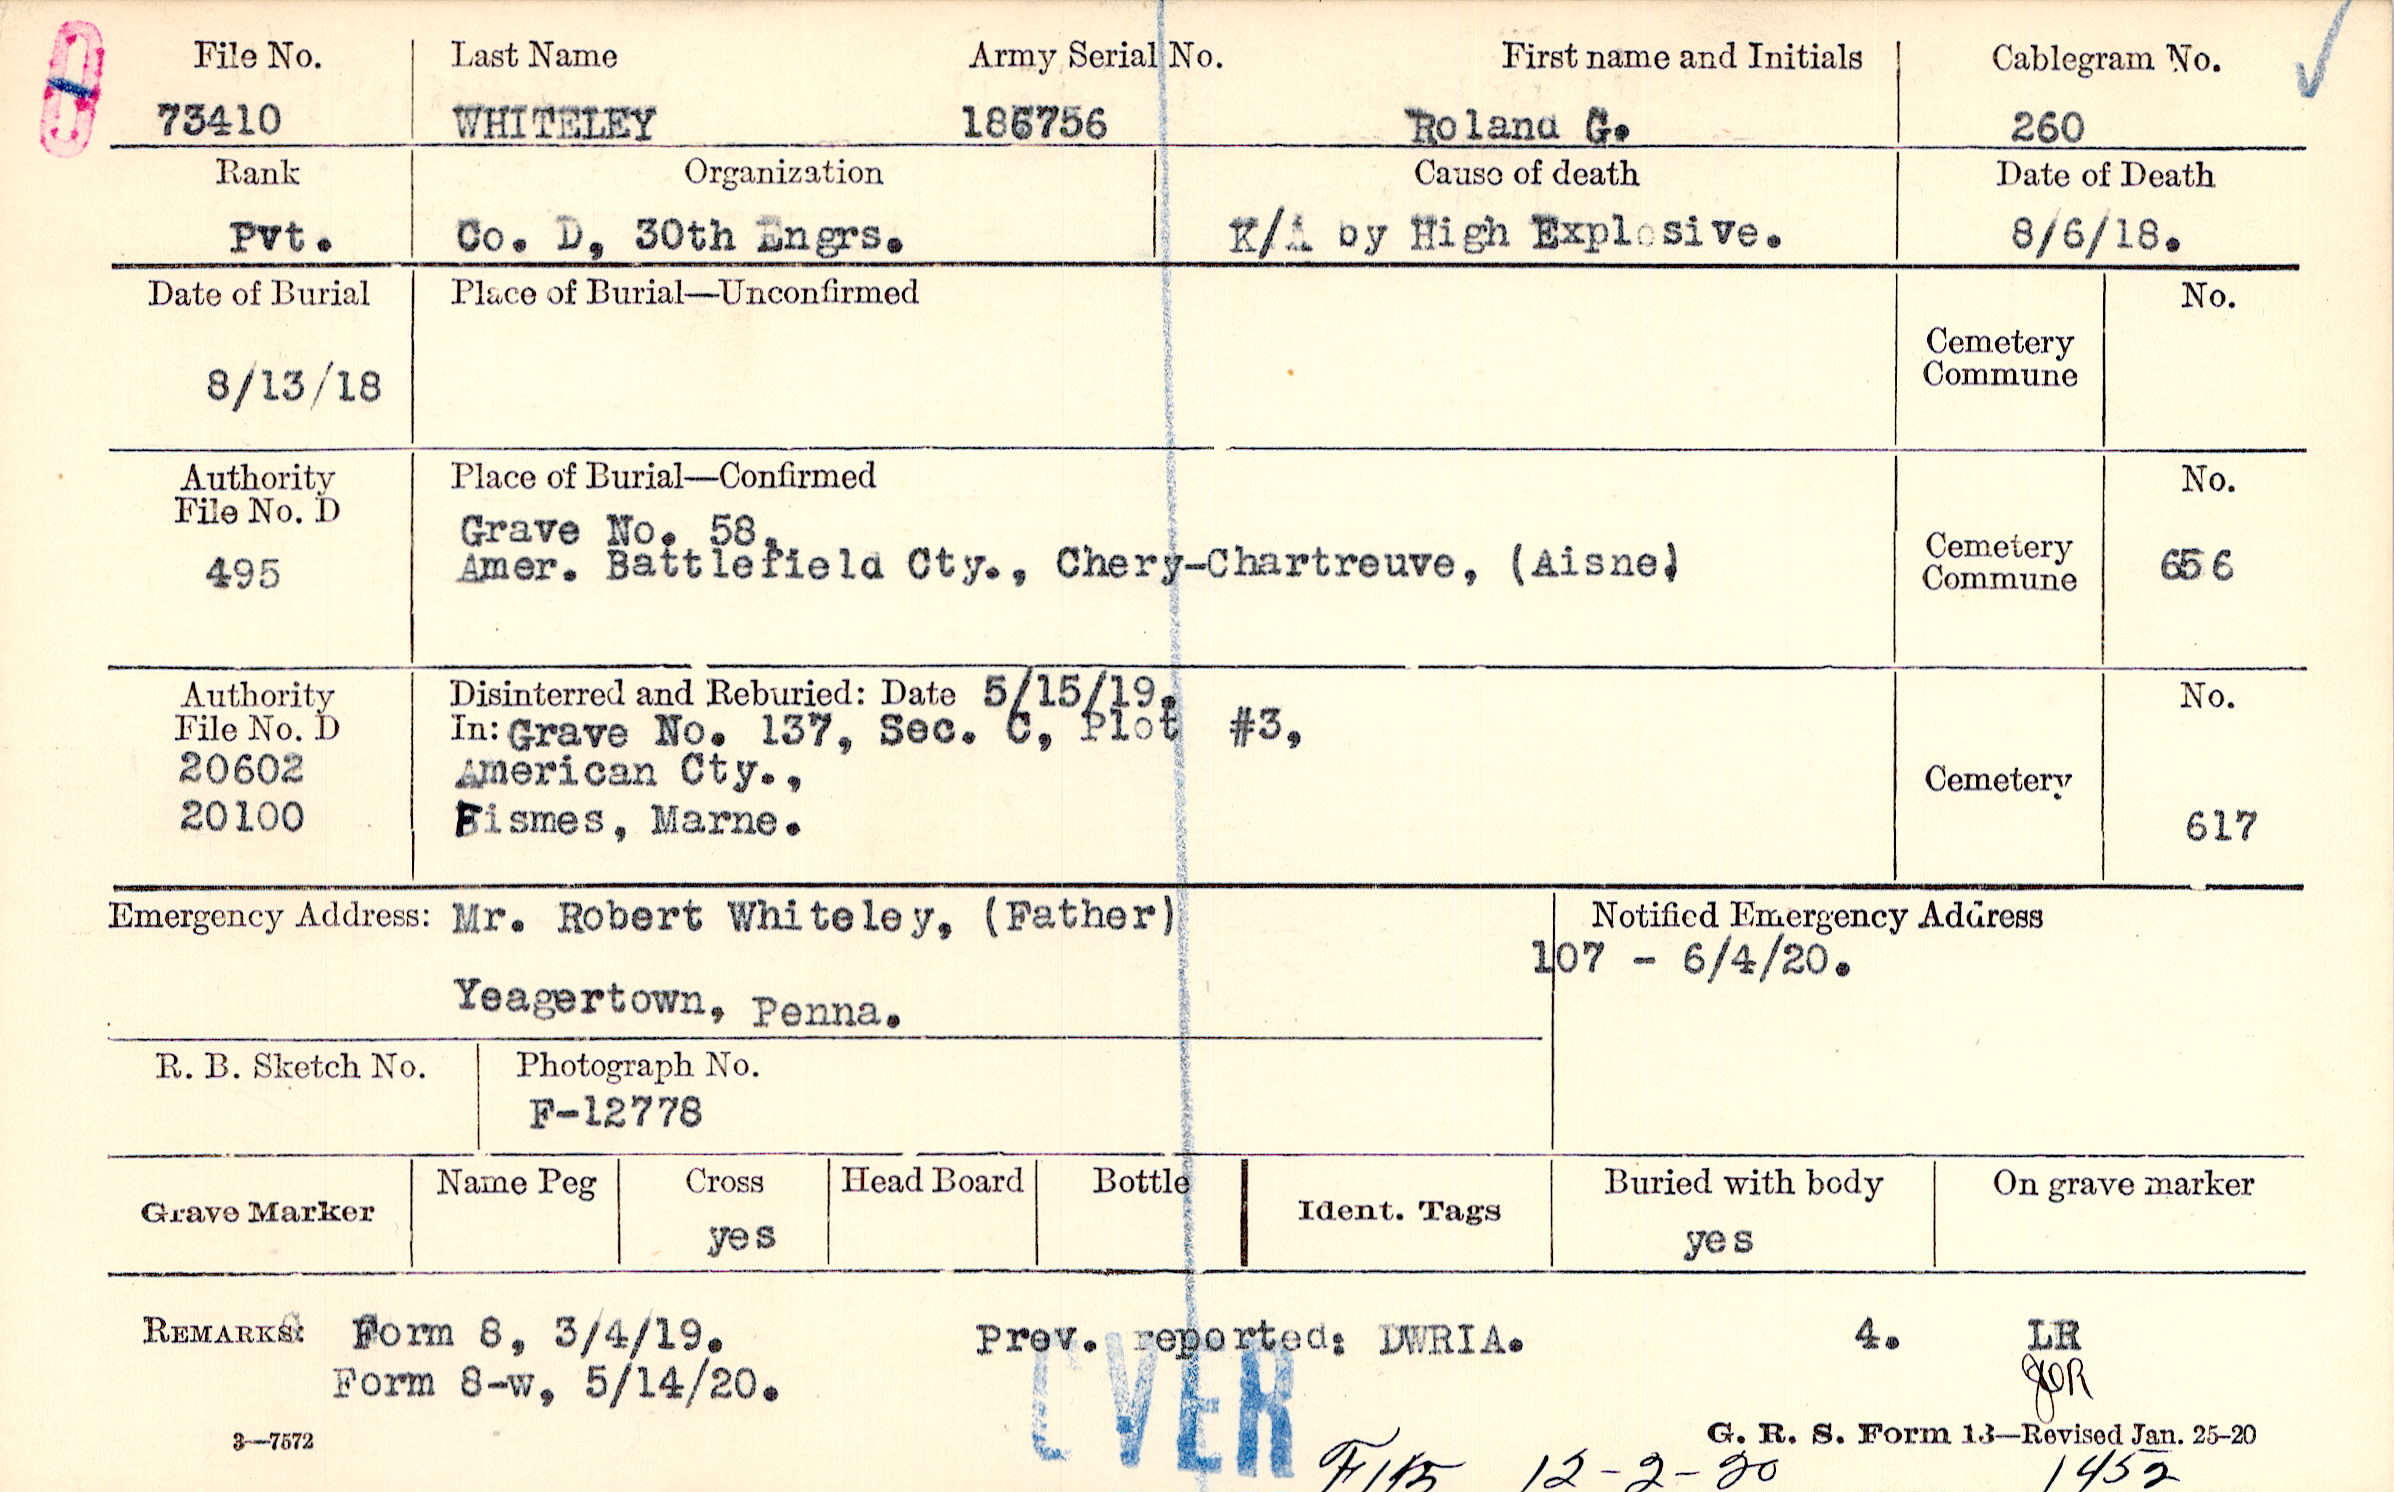 File No. Last Name Army Serial No. First name and Initials Cablegram No.
73410 WHITELEY 186756 Roland G. 260
Rank Organization Cause of death Date of Death
Pvt. Co. D, 30th Engrs. K/A by High Explosive. 8/6/18.
Date of Burial Place of Burial—Unconfirmed No.
Cemetery
Commune
8/13/18
Authority Place of Burial—Confirmed No.
File No. D
Grave No. 58,
495 Amer. Battlefield Cty., Chery-Chartreuve, (Aisne) Cemetery Commune 656
Authority Disinterred and Reburied: Date 5/15/19. No.
File No. D In: Grave No. 137, Sec. C, Plot #3,
20602 American Cty., Cemetery
20100 Fismes, Marne. 617
Emergency Address: Mr. Robert Whiteley, (Father) Notified Emergency Address
107 - 6/4/20.
Yeagertown, Penna.
R. B. Sketch No. Photograph No.
F-12778
Grave Marker Name Peg Cross Head Board Bottle Ident. Tags Buried with body On grave marker
yes yes
REMARKS: Form 8, 3/4/19. Prev. reported: DWRIA. 4. LR
Form 8-w, 5/14/20. JOR
OVER
3—7572 G. R. S. Form 13—Revised Jan. 25-20
12-2-20 1452